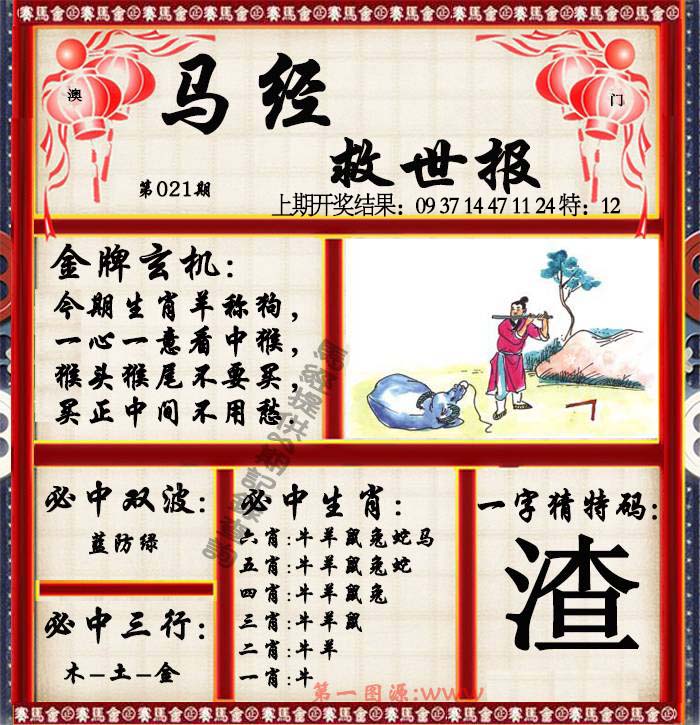 賽馬會 賽馬會 賽馬會 賽馬會 賽馬會 賽馬會 賽馬會 賽馬會
澳
门
马经
救世报
第021期
上期开奖结果：09 37 14 47 11 24 特：12
金牌玄机：
今期生肖羊称狗，
一心一意看中猴，
猴头猴尾不要买，
买正中间不用愁.
必中双波：
蓝防绿
必中三行：
木–土–金
必中生肖：
六肖:牛羊鼠兔蛇马
五肖:牛羊鼠兔蛇
四肖:牛羊鼠兔
三肖:牛羊鼠
二肖:牛羊
一肖:牛
一字猜特码：
渣
第一图源:www